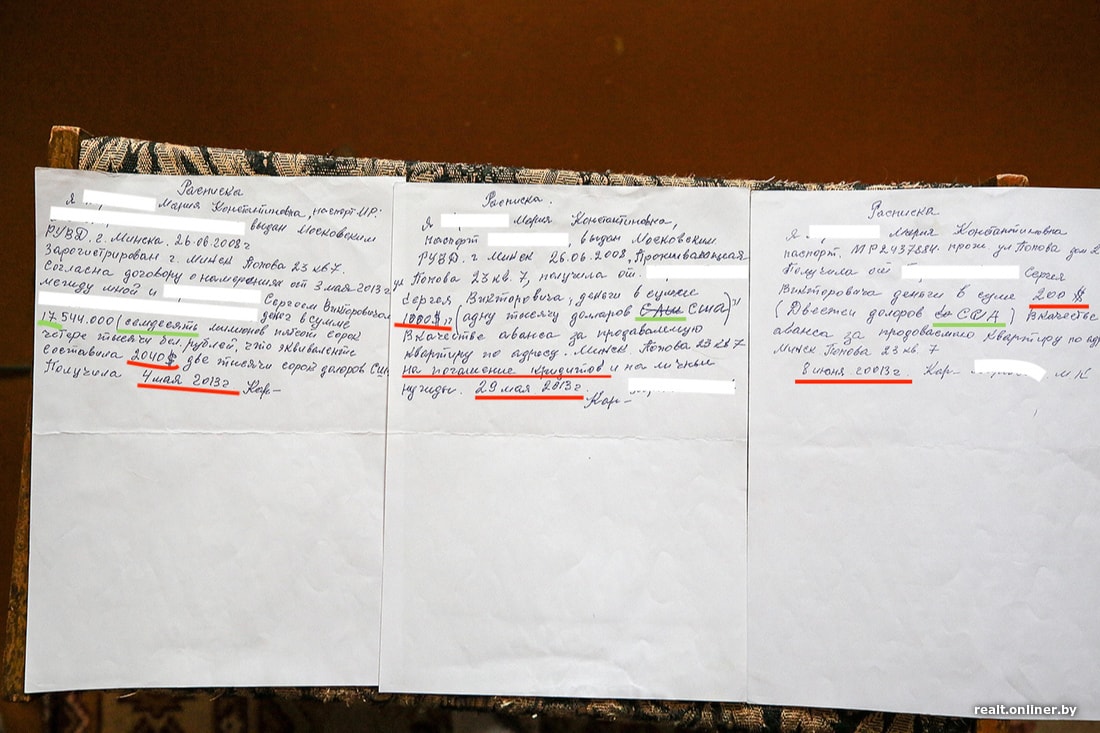 Расписка
Я Мария Константиновна, паспорт МР.
выдан Московским
РУВД. г. Минска. 26.06.2008 г
Зарегистрирован г. Минск Попова 23 кв 7.
Согласна договору о намерениях от 3 мая 2013 г
между мной и Сергеем Викторовичем
денег в сумме
17.544.000 (семдесять миллионов пятсот сорок
четере тысячи бел. рублей, что эквиваленте
составила 2040$ две тысячи сорок доларов США
Получила 4 мая 2013 г Кар-
Расписка.
Я Мария Константиновна,
паспорт выдан Московским
РУВД. г Минск 26.06.2008, Проживающая
ул Попова 23 кв. 7, получила от.
Сергея Викторовича, деньги в сумме
1000$, (адну тысячу доларов США США)
Вкачестве аванса за продаваемую
квартиру по адресу. Минск Попова 23 кв 7
на погашение кридитов и на личные
нужды. 29 мая 2013 г. Кар-
Расписка
Я Мария Константиновна
паспорт. МР2437884. прож. ул Попова дом 2
Получила от Сергея
Викторовича деньги в суме 200 $
(Двести доларов США) Вкачестве
аванса за продоваемаю квартиру по ад
Минск Попова 23 кв. 7
8 июня 20013 г. Кар- М К
realt.onliner.by